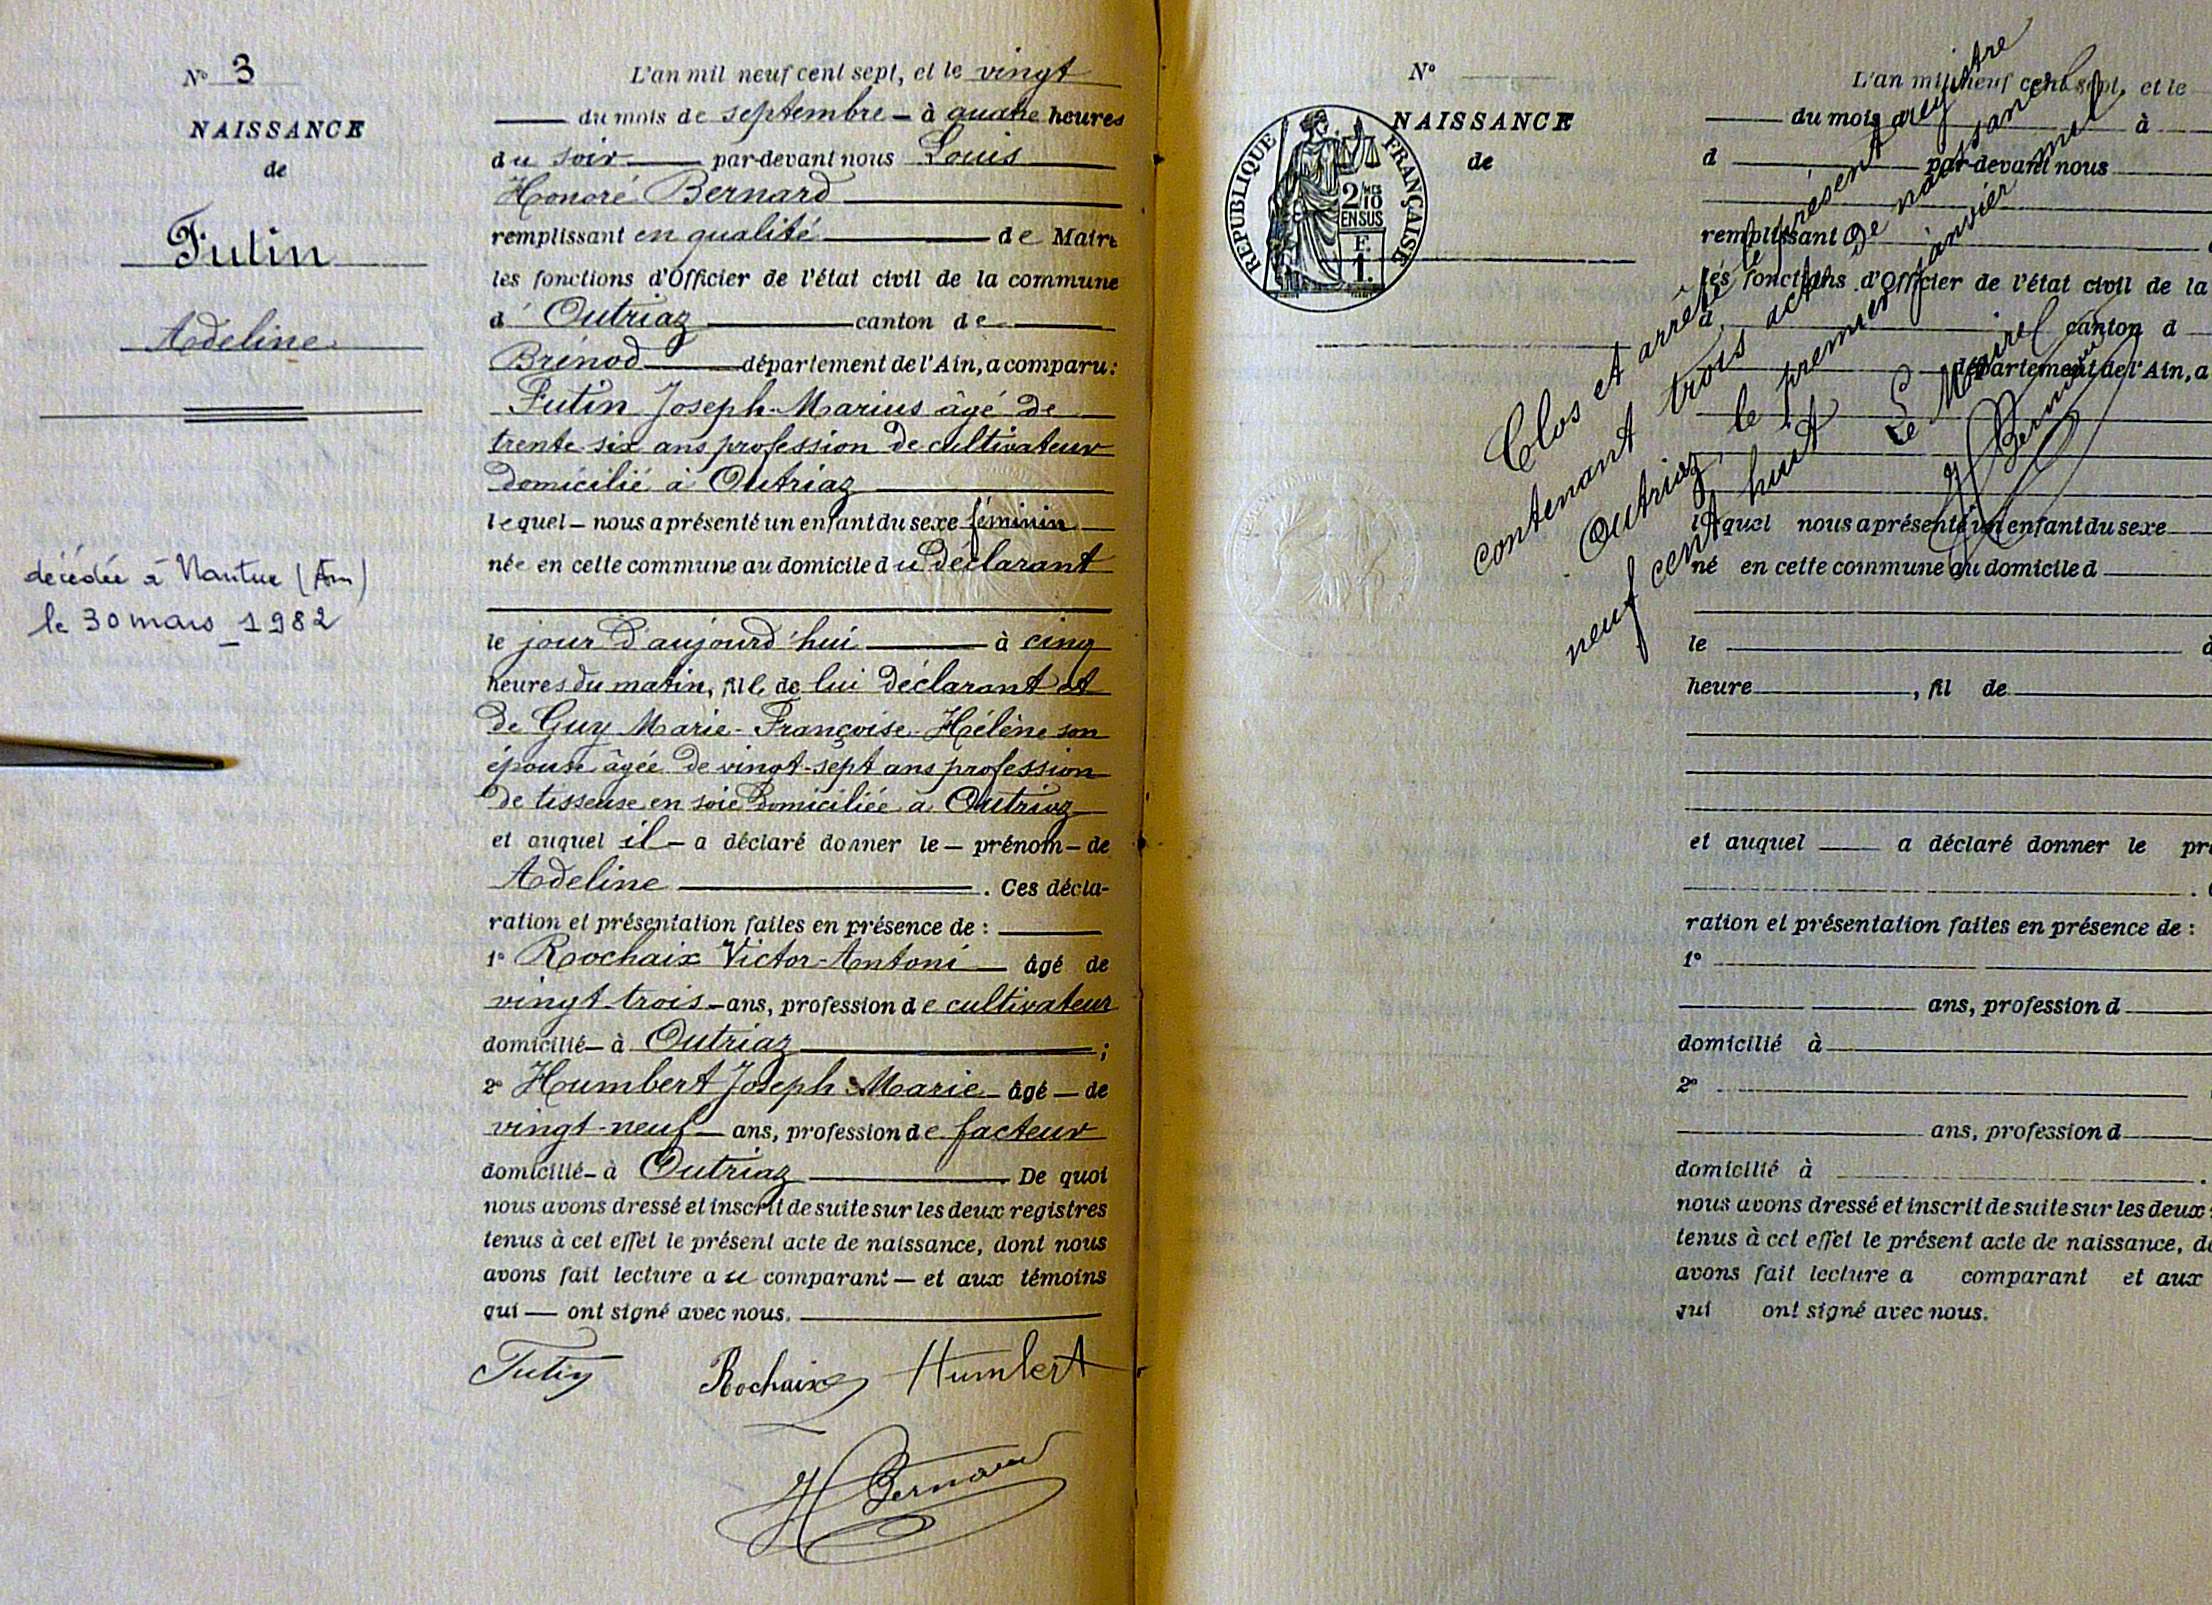 N° 3
NAISSANCE
de
Futin
Adeline
décédée à Nantua (Ain)
le 30 mars 1982
L'an mil neuf cent sept, et le vingt
du mois de septembre - à quatre heures
du soir par-devant nous Louis
Honoré Bernard
remplissant en qualité de Maire
les fonctions d'Officier de l'état civil de la commune
d' Outriaz canton de
Brénod département de l'Ain, a comparu:
Futin Joseph-Marius âgé de
trente-six ans profession de cultivateur
domicilié à Outriaz
lequel - nous a présenté un enfant du sexe féminin
née en cette commune au domicile du déclarant
le jour d'aujourd'hui à cinq
heures du matin, fille de lui déclarant et
de Guy Marie-Françoise-Hélène son
épouse âgée de vingt-sept ans profession
de tisseuse en soie domiciliée à Outriaz
et auquel il - a déclaré donner le - prénom - de
Adeline . Ces décla-
ration et présentation faites en présence de :
1° Rochaix Victor-Antoni âgé de
vingt-trois - ans, profession de cultivateur
domicilié - à Outriaz ;
2° Humbert Joseph-Marie - âgé - de
vingt-neuf - ans, profession de facteur
domicilié - à Outriaz De quoi
nous avons dressé et inscrit de suite sur les deux registres
tenus à cet effet le présent acte de naissance, dont nous
avons fait lecture au comparant - et aux témoins
qui - ont signé avec nous.
Futin Rochaix Humbert
H Bernard
N°
NAISSANCE
de
RÉPUBLIQUE FRANÇAISE
2/10 MES
EN SUS
F.
1.
L'an mil neuf cent sept, et le
du mois d à
d par-devant nous
remplissant
les fonctions d'Officier de l'état civil de la
d canton d
département de l'Ain, a
lequel nous a présenté un enfant du sexe
né en cette commune au domicile d
le
heure , fil de
et auquel a déclaré donner le pré
ration et présentation faites en présence de :
1°
ans, profession d
domicilié à
2°
ans, profession d
domicilié à .
nous avons dressé et inscrit de suite sur les deux
tenus à cet effet le présent acte de naissance, do
avons fait lecture a comparant et aux
qui ont signé avec nous.
Clos et arrêté le présent registre
contenant trois actes de naissance
Outriaz, le premier janvier mil
neuf cent huit
Le Maire
H Bernard